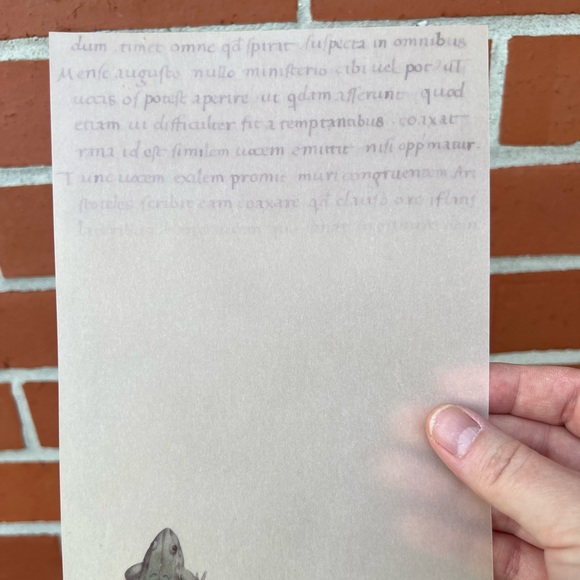 dum timet omne qd spirit suspecta in omnibus
Mense augusto nullo ministerio cibi uel pot
os potest aperire ut qdam asserunt quod
etiam ut difficulter fit a temptantibus coaxat
rana id est similem uocem emittit nisi opprimatur.
Tunc uocem exilem promit muri congruentem Ari
stoteles scribit eam coaxare qd clauso ore